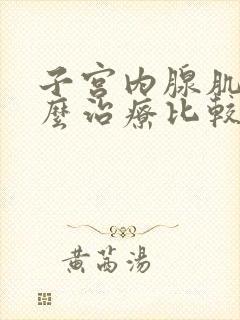 子宫内腺肌
麼治療比較
黄芮湯